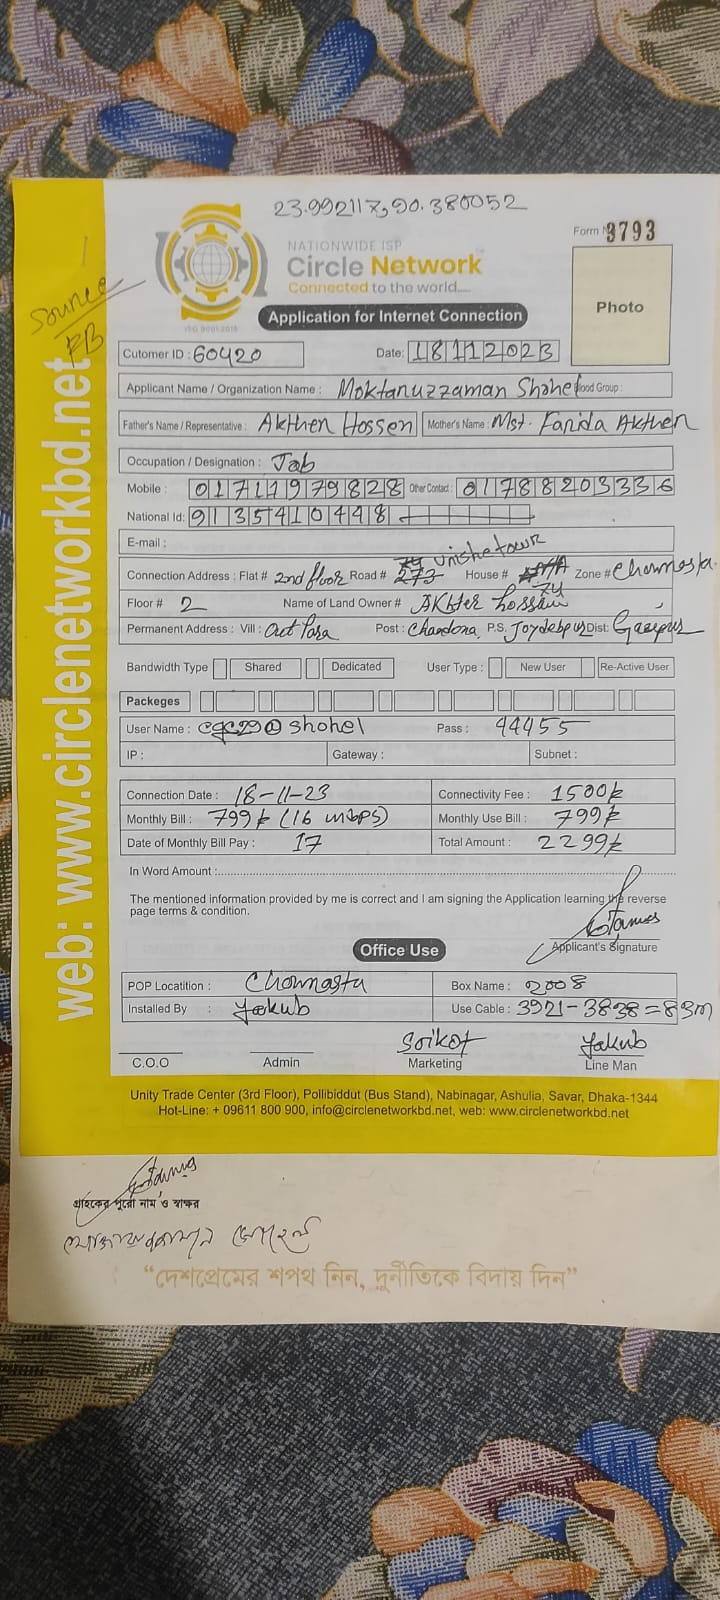 23.992117,90.380052
NATIONWIDE ISP
Circle Network
Connected to the world.....
ISO 9001:2015
Form N 3793
Photo
Source
FB
Application for Internet Connection
Cutomer ID : 60420 Date: 18112023
Applicant Name / Organization Name : Moktaruzzaman Shohel Blood Group :
Father's Name / Representative : Akther Hossen Mother's Name : Mst. Farida Akther
Occupation / Designation : Job
Mobile : 01717979828 Other Contact : 01788203336
National Id: 9135410448
E-mail :
Connection Address : Flat # 2nd floor Road # House # 74 Zone # Chowrasta
Floor # 2 Name of Land Owner # Akhter Hossain
Permanent Address : Vill : Out Para Post : Chandona, P.S. Joydebpur Dist: Gazipur
Bandwidth Type Shared Dedicated User Type : New User Re-Active User
Packeges
User Name : cgc29@shohel Pass : 44455
IP : Gateway : Subnet :
Connection Date : 18-11-23 Connectivity Fee : 1500/=
Monthly Bill : 799/= (16 mbps) Monthly Use Bill : 799/=
Date of Monthly Bill Pay : 17 Total Amount : 2299/=
In Word Amount :
The mentioned information provided by me is correct and I am signing the Application learning the reverse
page terms & condition.
Applicant's Signature
Office Use
POP Locatition : Chowrasta Box Name : 2008
Installed By : Yakub Use Cable : 3921-3838=83m
Soikot Yakub
C.O.O Admin Marketing Line Man
web: www.circlenetworkbd.net
Unity Trade Center (3rd Floor), Pollibiddut (Bus Stand), Nabinagar, Ashulia, Savar, Dhaka-1344
Hot-Line: + 09611 800 900, info@circlenetworkbd.net, web: www.circlenetworkbd.net
গ্রাহকের পুরো নাম ও স্বাক্ষর
“দেশপ্রেমের শপথ নিন, দুর্নীতিকে বিদায় দিন”